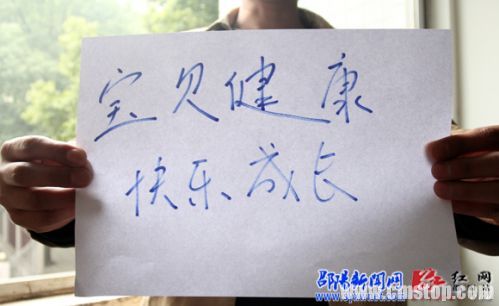 宝贝健康
快乐成长
邵阳新闻网
红网
www.cmstop.com